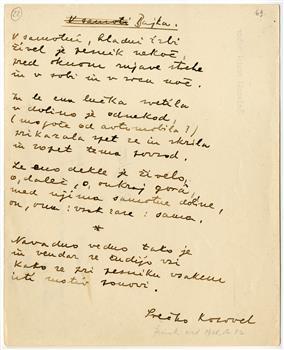 22
69.
V samoti Bajka.
V samotni, hladni izbi
živel je pesnik nekoč,
pred oknom rujave strehe
in v sobi in v srcu noč.
In le ena lučka svetila
v dolino je odnekod,
(mogoče od avtomobila?)
prikazala spet se in skrila
in zopet tema povsod.
Le eno dekle je živelo,
o, daleč, o, onkraj gorá,
med njima samotne doline,
on, ona: vsak zase: sama.
*
Navadno vedno tako je
in vendar se čudijo vsi
kako se pri pesniku vsakem
isti motiv ponovi.
Srečko Kosovel